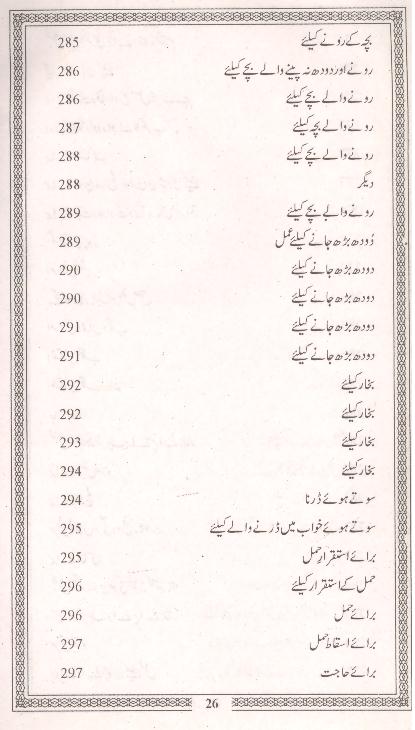 بچہ کے رونے کیلئے 285
رونے اور دودھ نہ پینے والے بچے کیلئے 286
رونے والے بچے کیلئے 286
رونے والے بچہ کیلئے 287
رونے والے بچے کیلئے 288
دیگر 288
رونے والے بچے کیلئے 289
دُودھ بڑھ جانے کیلئے عمل 289
دودھ بڑھ جانے کیلئے 290
دودھ بڑھ جانے کیلئے 290
دودھ بڑھ جانے کیلئے 291
دودھ بڑھ جانے کیلئے 291
بخار کیلئے 292
بخار کیلئے 292
بخار کیلئے 293
بخار کیلئے 294
سوتے ہوئے ڈرنا 294
سوتے ہوئے خواب میں ڈرنے والے کیلئے 295
برائے استقرار حمل 295
حمل کے استقرار کیلئے 296
برائے حمل 296
برائے اسقاط حمل 297
برائے حاجت 297
26